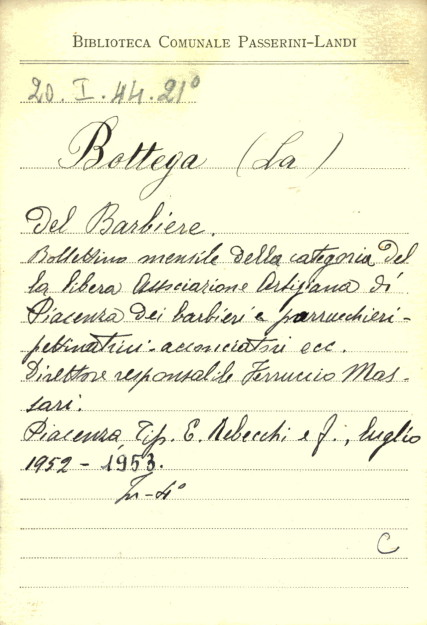 BIBLIOTECA COMUNALE PASSERINI-LANDI
20. I. 44. 21°
Bottega (La)
del Barbiere.
Bollettino mensile della categoria del
la libera Associazione Artigiana di
Piacenza dei barbieri e parrucchieri-
pettinatrici-acconciatori ecc.
Direttore responsabile Ferruccio Mas-
sari.
Piacenza, Tip. E. Rebecchi e f., luglio
1952 - 1953.
In-4°
C